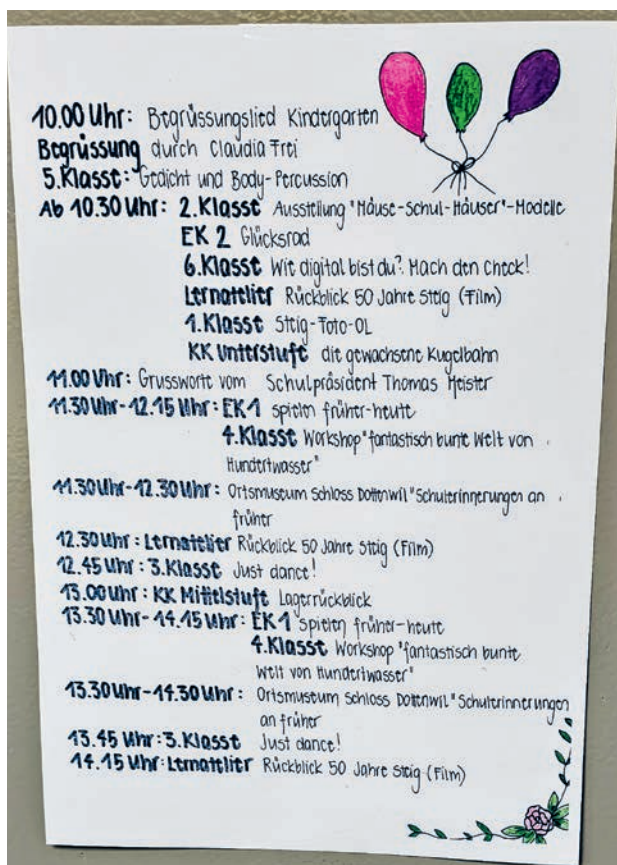 10.00 Uhr: Begrüssungslied Kindergarten
Begrüssung durch Claudia Frei
5.Klasse: Gedicht und Body-Percussion
Ab 10.30 Uhr: 2.Klasse Ausstellung "Mäuse-Schul-Häuser"-Modelle
EK 2 Glücksrad
6.Klasse Wie digital bist du? Mach den Check!
Lernatelier Rückblick 50 Jahre Steig (Film)
1.Klasse Steig-Foto-OL
KK Unterstufe die gewachsene Kugelbahn
11.00 Uhr: Grussworte vom Schulpräsident Thomas Meister
11.30 Uhr-12.15 Uhr: EK1 spielen früher-heute
4.Klasse Workshop "fantastisch bunte Welt von
Hundertwasser"
11.30 Uhr-12.30 Uhr: Ortsmuseum Schloss Dottenwil "Schulerinnerungen an
früher
12.30 Uhr: Lernatelier Rückblick 50 Jahre Steig (Film)
12.45 Uhr: 3.Klasse Just dance!
13.00 Uhr: KK Mittelstufe Lagerrückblick
13.30 Uhr-14.15 Uhr: EK1 spielen früher-heute
4.Klasse Workshop "fantastisch bunte
Welt von Hundertwasser"
13.30 Uhr-14.30 Uhr: Ortsmuseum Schloss Dottenwil "Schulerinnerungen
an früher
13.45 Uhr: 3.Klasse Just dance!
14.15 Uhr: Lernatelier Rückblick 50 Jahre Steig (Film)